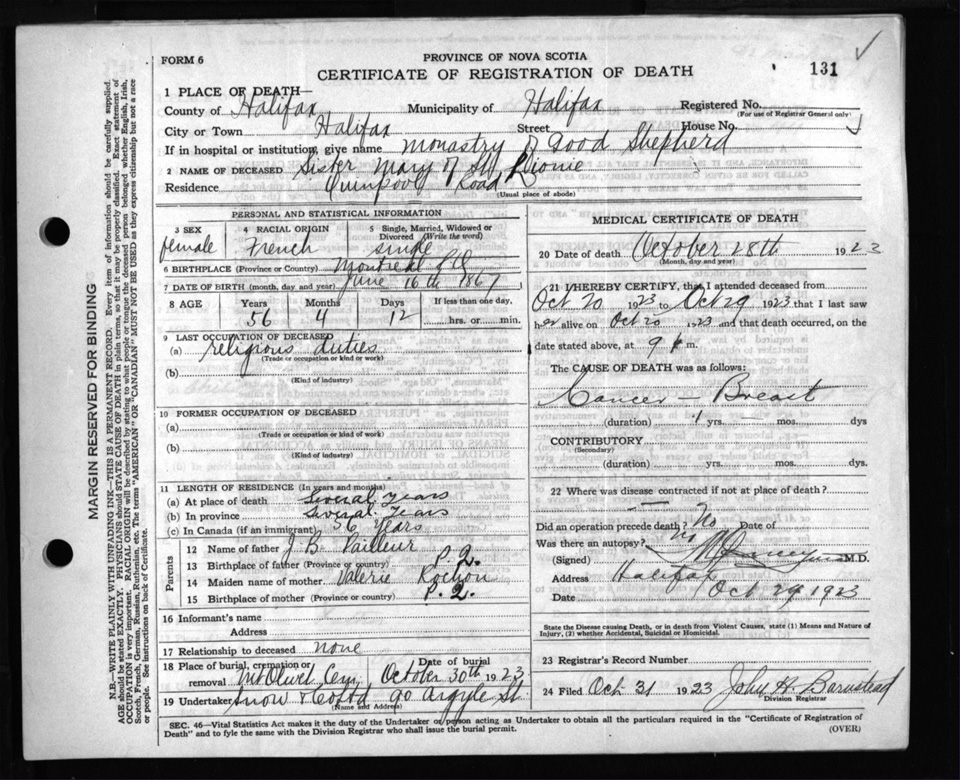 FORM 6
PROVINCE OF NOVA SCOTIA
CERTIFICATE OF REGISTRATION OF DEATH
131
1 PLACE OF DEATH—
County of Halifax Municipality of Halifax Registered No.
(For use of Registrar General only)
City or Town Halifax Street House No.
If in hospital or institution, give name Monastry of Good Shepherd
2 NAME OF DECEASED Sister Mary of St
Residence Quinpool Road
(Usual place of abode)
PERSONAL AND STATISTICAL INFORMATION
3 SEX 4 RACIAL ORIGIN 5 Single, Married, Widowed or Divorced (Write the word)
female French single
6 BIRTHPLACE (Province or Country) Montreal P.Q.
7 DATE OF BIRTH (month, day, and year) June 16th 1867
8 AGE Years Months Days If less than one day,
56 4 12 hrs. or min.
9 LAST OCCUPATION OF DECEASED
(a) religious duties
(Trade or occupation or kind of work)
(b)
(Kind of industry)
10 FORMER OCCUPATION OF DECEASED
(a)
(Trade or occupation or kind of work)
(b)
(Kind of industry)
11 LENGTH OF RESIDENCE (In years and months)
(a) At place of death Several Years
(b) In province Several Years
(c) In Canada (if an immigrant) 56 Years
Parents
12 Name of father J. B. Pailleur
13 Birthplace of father (Province or country) P.Q.
14 Maiden name of mother Valerie Rochon
15 Birthplace of mother (Province or country) P.Q.
16 Informant's name
Address
17 Relationship to deceased none
18 Place of burial, cremation or removal Mt Olivet Cem Date of burial October 30th 1923
19 Undertaker Snow & Co Ltd 90 Argyle St
(Name and Address)
MEDICAL CERTIFICATE OF DEATH
20 Date of death October 28th 1923
(Month, day and year)
21 I HEREBY CERTIFY, that I attended deceased from
Oct 20 1923 to Oct 29 1923 that I last saw
her alive on Oct 20 1923 and that death occurred, on the
date stated above, at 9 m.
The CAUSE OF DEATH was as follows:
Cancer — Breast
(duration) 1 yrs. mos. dys
CONTRIBUTORY
(Secondary)
(duration) yrs. mos. dys.
22 Where was disease contracted if not at place of death?
Did an operation precede death? No Date of
Was there an autopsy? No
(Signed) M.D.
Address Halifax
Date Oct 29 1923
State the Disease causing Death, or in death from Violent Causes, state (1) Means and Nature of Injury, (2) whether Accidental, Suicidal or Homicidal.
23 Registrar's Record Number
24 Filed Oct 31 1923 John H. Barnstead
Division Registrar
SEC. 46—Vital Statistics Act makes it the duty of the Undertaker or person acting as Undertaker to obtain all the particulars required in the "Certificate of Registration of
Death" and to fyle the same with the Division Registrar who shall issue the burial permit.
(OVER)
MARGIN RESERVED FOR BINDING
N.B.—WRITE PLAINLY WITH UNFADING INK—THIS IS A PERMANENT RECORD. Every item of information should be carefully supplied.
AGE should be stated EXACTLY. PHYSICIANS should STATE CAUSE OF DEATH in plain terms, so that it may be properly classified. Exact statement of
OCCUPATION is very important. RACIAL ORIGIN will be described by stating to what people or tongue the deceased person belonged whether English, Irish,
Scotch, French, German, Russian, Ruthenian, etc. The terms "AMERICAN" OR "CANADIAN" MUST NOT BE USED as they express citizenship but not a race
or people. See instructions on back of Certificate.